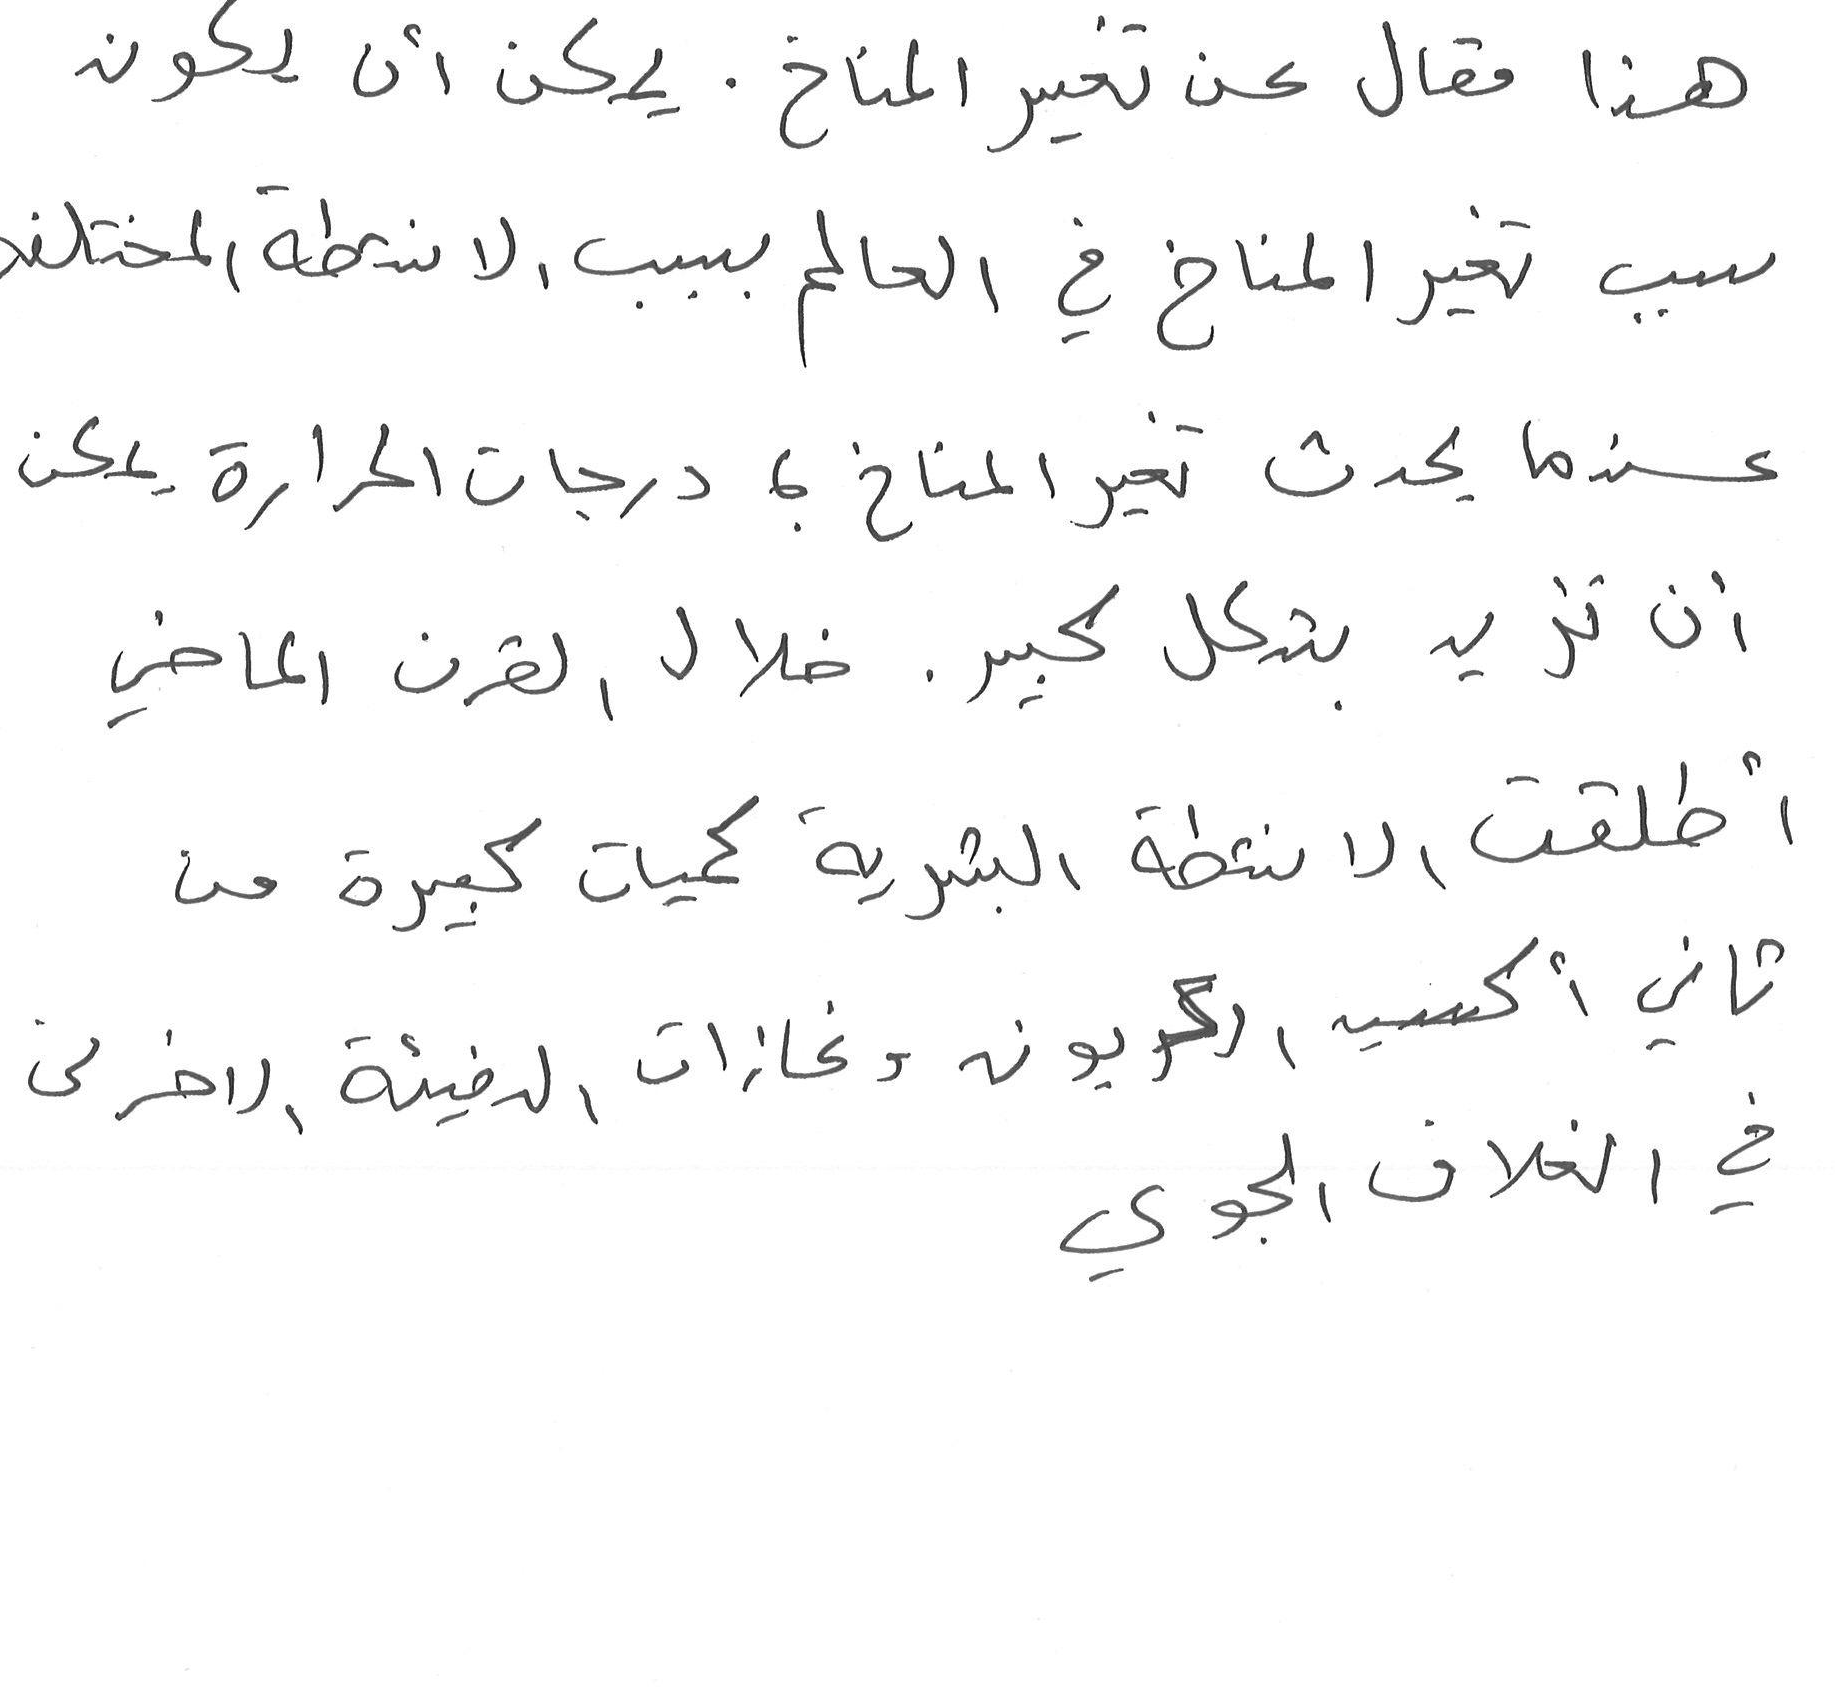 هذا مقال عن تغير المناخ. يمكن أن يكون
سبب تغير المناخ في العالم بسبب الانشطة المختلفة
عندما يحدث تغير المناخ، درجات الحرارة يمكن
ان تزيد بشكل كبير. خلال القرن الماضي
أطلقت الانشطة البشرية كميات كبيرة من
ثاني أكسيد الكربون وغازات الدفيئة الاخرى
في الغلاف الجوي